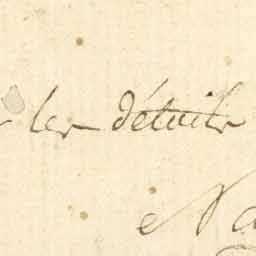 les détails
Na